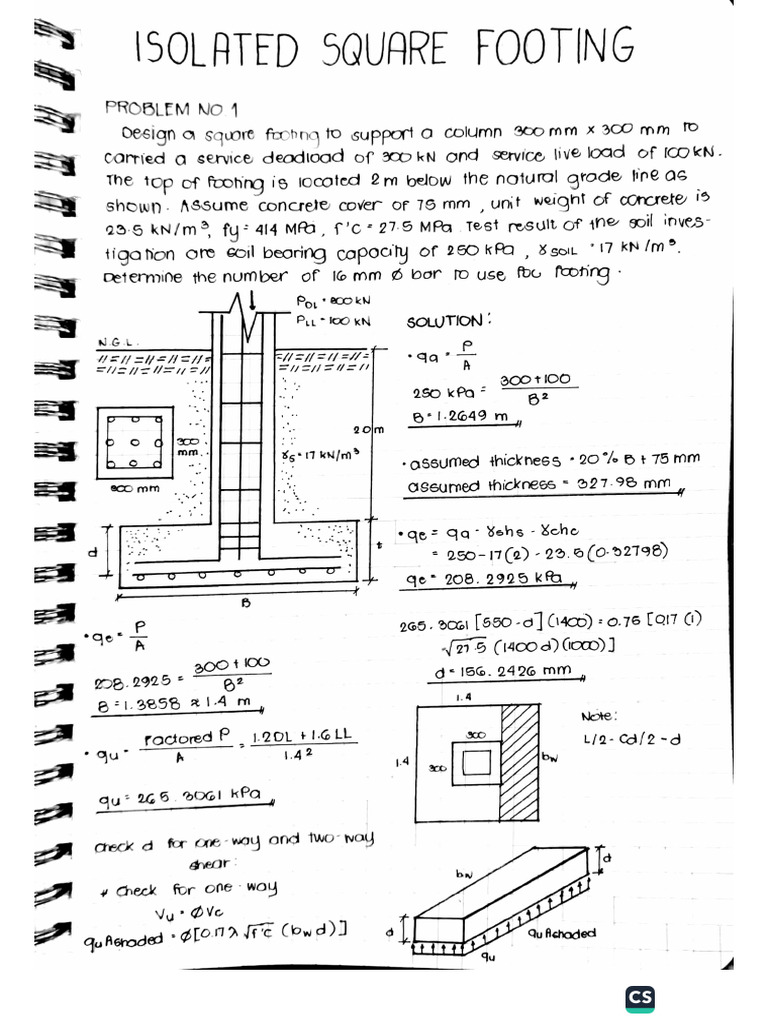 ISOLATED SQUARE FOOTING
PROBLEM NO 1
Design a square footing to support a column 300 mm x 300 mm to
carried a service deadload of 300 kN and service live load of 100 kN.
The top of footing is located 2 m below the natural grade line as
shown. Assume concrete cover of 75 mm, unit weight of concrete is
23.5 kN/m³, fy = 414 MPa, f'c = 27.5 MPa. Test result of the soil inves-
tigation are soil bearing capacity of 250 kPa, γSOIL = 17 kN/m³.
Determine the number of 16 mm Ø bar to use for footing.
PDL = 300 kN
PLL = 100 kN
N.G.L.
300
mm
300 mm
2.0 m
γs = 17 kN/m³
d
t
B
SOLUTION:
• qa = P/A
250 kPa = 300+100/B²
B = 1.2649 m
• assumed thickness = 20% B + 75 mm
assumed thickness = 327.98 mm
• qe = qa - γshs - γchc
= 250-17(2) - 23.5(0.32798)
qe = 208.2925 kPa
• qe = P/A
208.2925 = 300+100/B²
B = 1.3858 ≈ 1.4 m
• qu = Factored P/A = 1.2DL + 1.6LL/1.4²
qu = 265.3061 kPa
check d for one-way and two-way
shear:
* Check for one-way
Vu = ØVc
qu Ashaded = Ø[0.17λ√f'c (bwd)]
265.3061 [550-d](1400) = 0.75 [0.17 (1)
√27.5 (1400d)(1000)]
d = 156.2426 mm
1.4
1.4
300
300
bw
Note:
L/2 - Cd/2 - d
bw
d
d
qu
qu Ashaded
CS